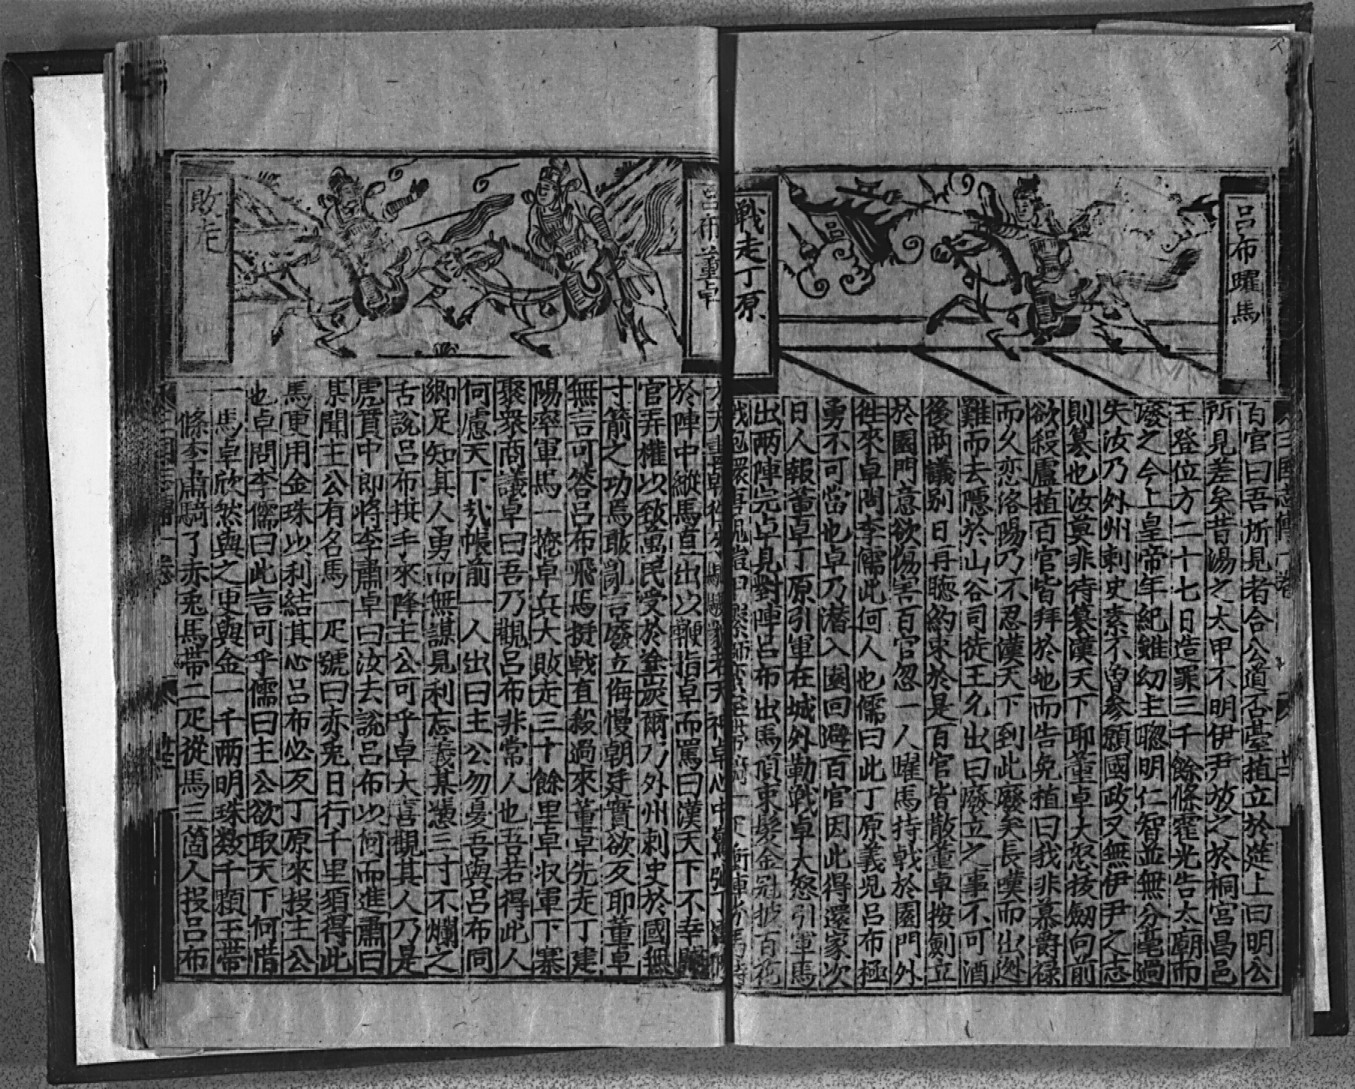 呂布躍馬
戰走丁原
百官曰吾所見者合公道否臺植立於筵上曰明公
所見差矣昔湯之太甲不明伊尹放之於桐宮昌邑
王登位方二十七日造罪三千餘條霍光告太廟而
廢之今上皇帝年紀雖幼主聰明仁智並無分毫過
失汝乃外州刺史素不曾參預國政又無伊尹之志
則篡也汝莫非待篡漢天下耶董卓大怒拔劒向前
欲殺盧植百官皆拜於地而告免植曰我非慕爵祿
而久恋洛陽乃不忍漢天下到此廢矣長嘆而出迯
難而去隱於山谷司徒王允出曰廢立之事不可酒
後商議别日再聴約束於是百官皆散董卓按劍立
於園門意欲傷害百官忽一人躍馬持戟於園門外
徃來卓問李儒此何人也儒曰此丁原義兒吕布極
勇不可當也卓乃潛入園回避百官因此得還家次
日人報董卓丁原引軍在城外勒戰卓大怒引軍馬
出两陣完卓見對陣吕布出馬頂束髮金冠披百花
呂布董卓
敗走
於陣中縱馬直出以鞭指卓而罵曰漢天下不幸
官弄權以致萬民受於塗炭爾乃外州刺史於國無
寸箭之功焉敢亂言廢立侮慢朝廷實欲反耶董卓
無言可答吕布飛馬挺戟直殺過來董卓先走丁建
陽率軍馬一掩卓兵大敗走三十餘里卓収軍下寨
聚衆商議卓曰吾乃觀吕布非常人也吾若得此人
何慮天下哉帳前一人出曰主公勿憂吾與吕布同
鄉足知其人勇而無謀見利忘義某憑三寸不爛之
舌說吕布拱手來降主公可乎卓大喜觀其人乃是
虎賁中郎將李肅卓曰汝去說吕布以何而進肅曰
某聞主公有名馬一疋號曰赤兎日行千里須得此
馬更用金珠以利結其心吕布必反丁原來投主公
也卓問李儒曰此言可乎儒曰主公欲取天下何惜
一馬卓欣然與之更與金一千兩明珠数千顆玉帶
一條李肅騎了赤兎馬帶二疋從馬三箇人投吕布